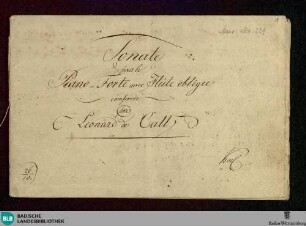 Sonate
pour le
Piano-Forte avec Flûte obligée
composée
par
Leonard de Call
BLB
BADISCHE
LANDESBIBLIOTHEK
Baden-Württemberg